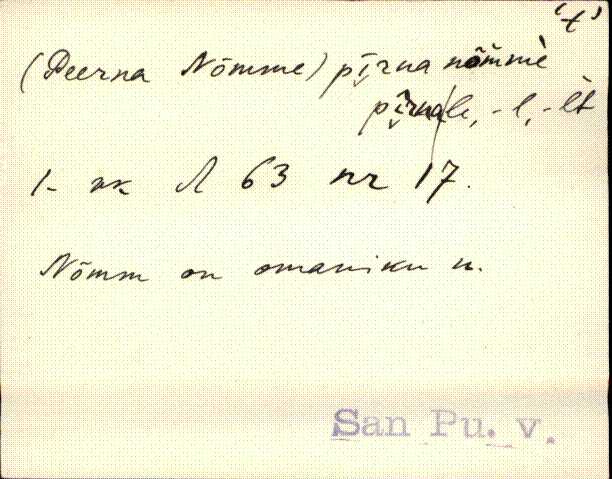 't'
(Peerna Nõmme) pi̮rna nõmmè
pi̮rna/le, -l, -lt
1. nk A 63 nr 17.
Nõmm on omaniku n.
San Pu. v.